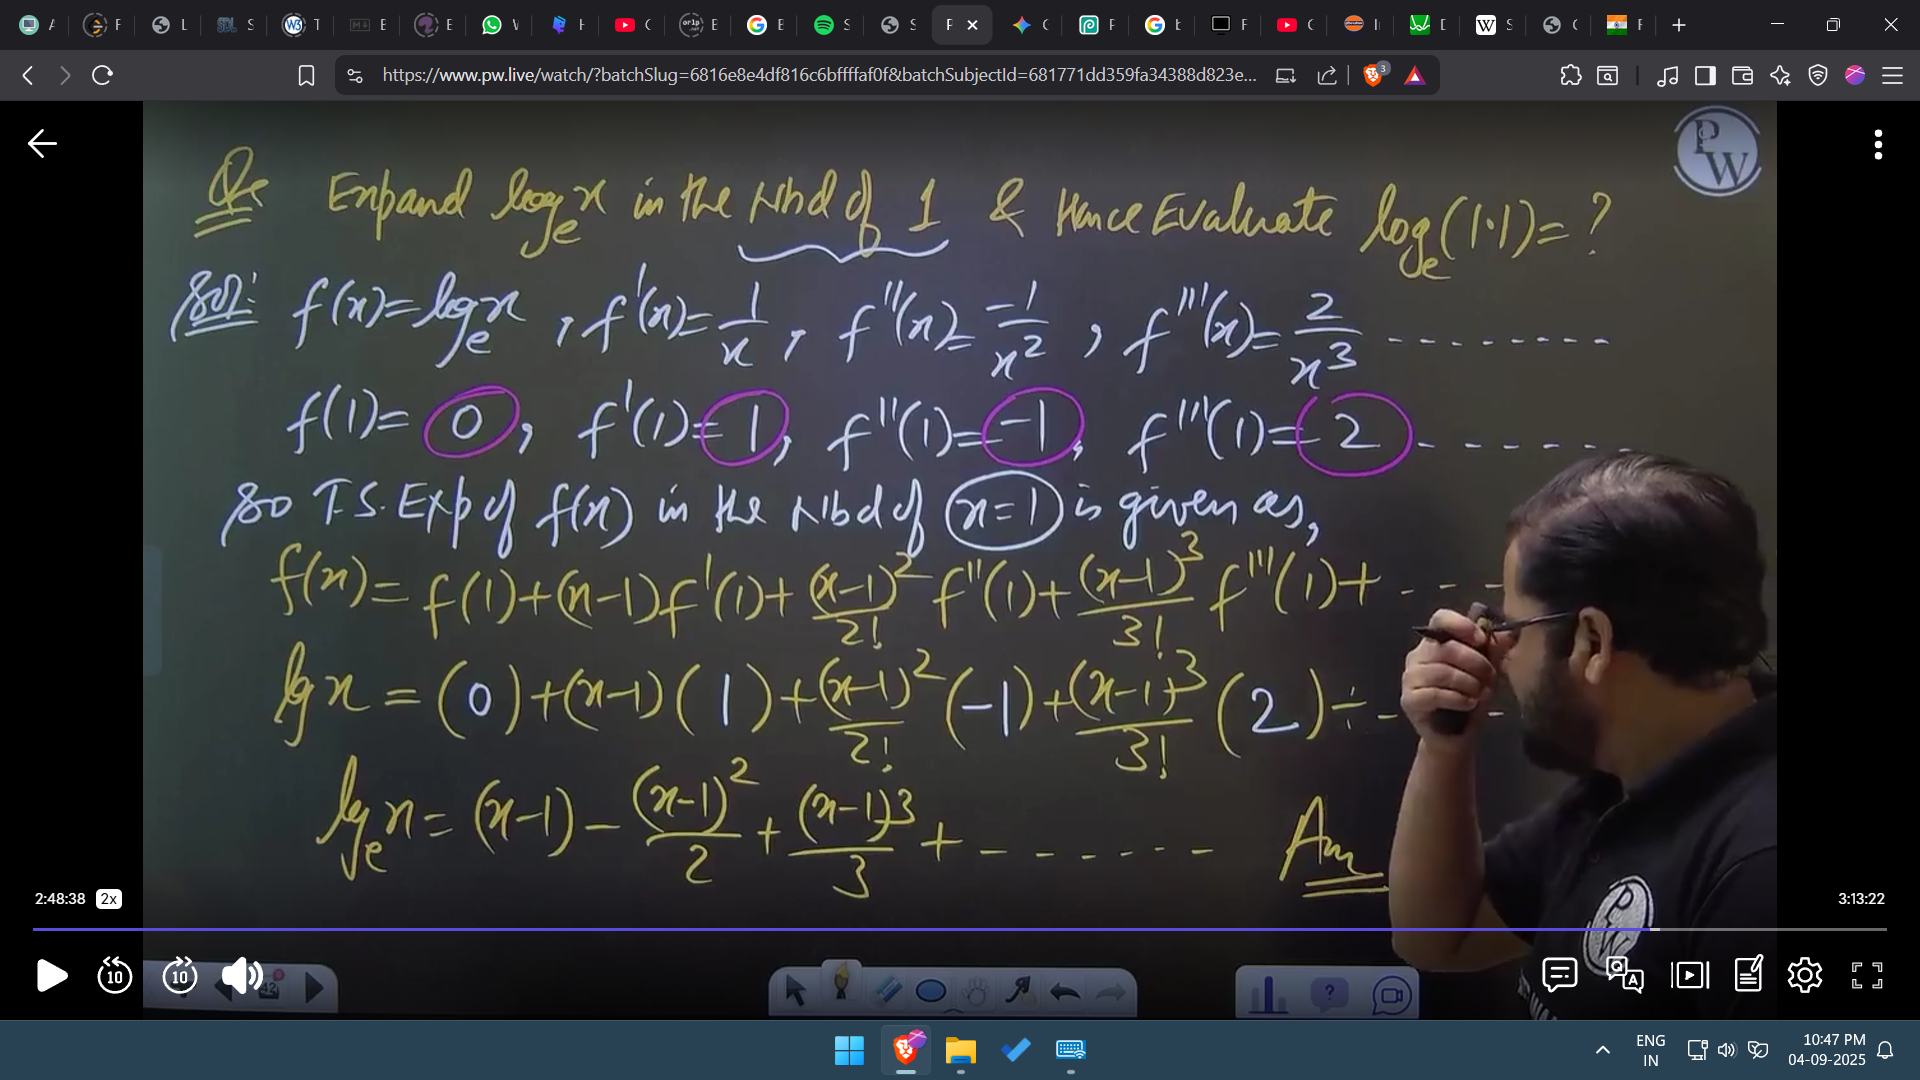 A F L S T E E W F C E E S S F C F k F C I D S C F
https://www.pw.live/watch/?batchSlug=6816e8e4df816c6bffffaf0f&batchSubjectId=681771dd359fa34388d823e... 3
PW
Qs Expand logₑx in the Nbd of 1 & Hence Evaluate logₑ(1.1)=?
Sol: f(x)=logₑx, f'(x)=1/x, f''(x)=-1/x², f'''(x)=2/x³ --------
f(1)=0, f'(1)=1, f''(1)=-1, f'''(1)=2 --------
So T.S. Exp of f(x) in the Nbd of x=1 is given as,
f(x)=f(1)+(x-1)f'(1)+(x-1)²/2! f''(1)+(x-1)³/3! f'''(1)+----
log x = (0)+(x-1)(1)+(x-1)²/2! (-1)+(x-1)³/3! (2)+----
logₑx = (x-1) - (x-1)²/2 + (x-1)³/3 + ------ Ans
2:48:38 2x 3:13:22
10 10
42
PW
ENG
IN
10:47 PM
04-09-2025